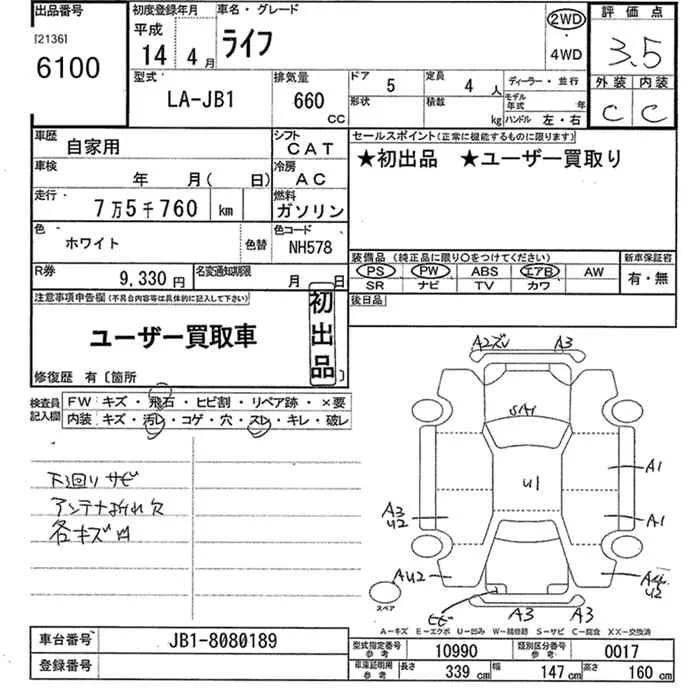 出品番号
[2136]
6100
初度登録年月
平成
14 4月
車名・グレード
ライフ
2WD
・
4WD
評価点
3.5
外装 内装
C C
型式
LA-JB1
排気量
660
CC
ドア
5
定員
4 人
形状
積載
kg
ディーラー・並行
モデル年式 年
ハンドル 左・右
車歴
自家用
シフト
CAT
車検
年 月( 日)
冷房
AC
走行
7万5千760 km
燃料
ガソリン
色
ホワイト
色替
色コード
NH578
R券
9,330円
名変通知期限
月 日
セールスポイント(正常に機能するものに限ります)
★初出品 ★ユーザー買取り
装備品 (純正品に限り○をつけてください)
PS PW ABS エアB AW
SR ナビ TV カワ
新車保証書
有・無
後日品
注意事項申告欄(不具合内容等は具体的に記入して下さい)
ユーザー買取車
初出品
修復歴 有〔箇所 〕
検査員記入欄
FW キズ・飛石・ヒビ割・リペア跡・×要
内装 キズ・汚レ・コゲ・穴・スレ・キレ・破レ
下廻りサビ
アンテナ折れ欠
各キズ凹
A2ズレ A3
SA1
U1
A1
A1
A3
U2
AU2
A4
U2
ヒビ
A3 A3
スペア
A－キズ E－エクボ U－凹み W－補修跡 S－サビ C－腐食 XX－交換済
車台番号
JB1-8080189
登録番号
型式指定番号 参考
10990
類別区分番号 参考
0017
車庫証明用 参考
長さ 339 cm
幅 147 cm
高さ 160 cm